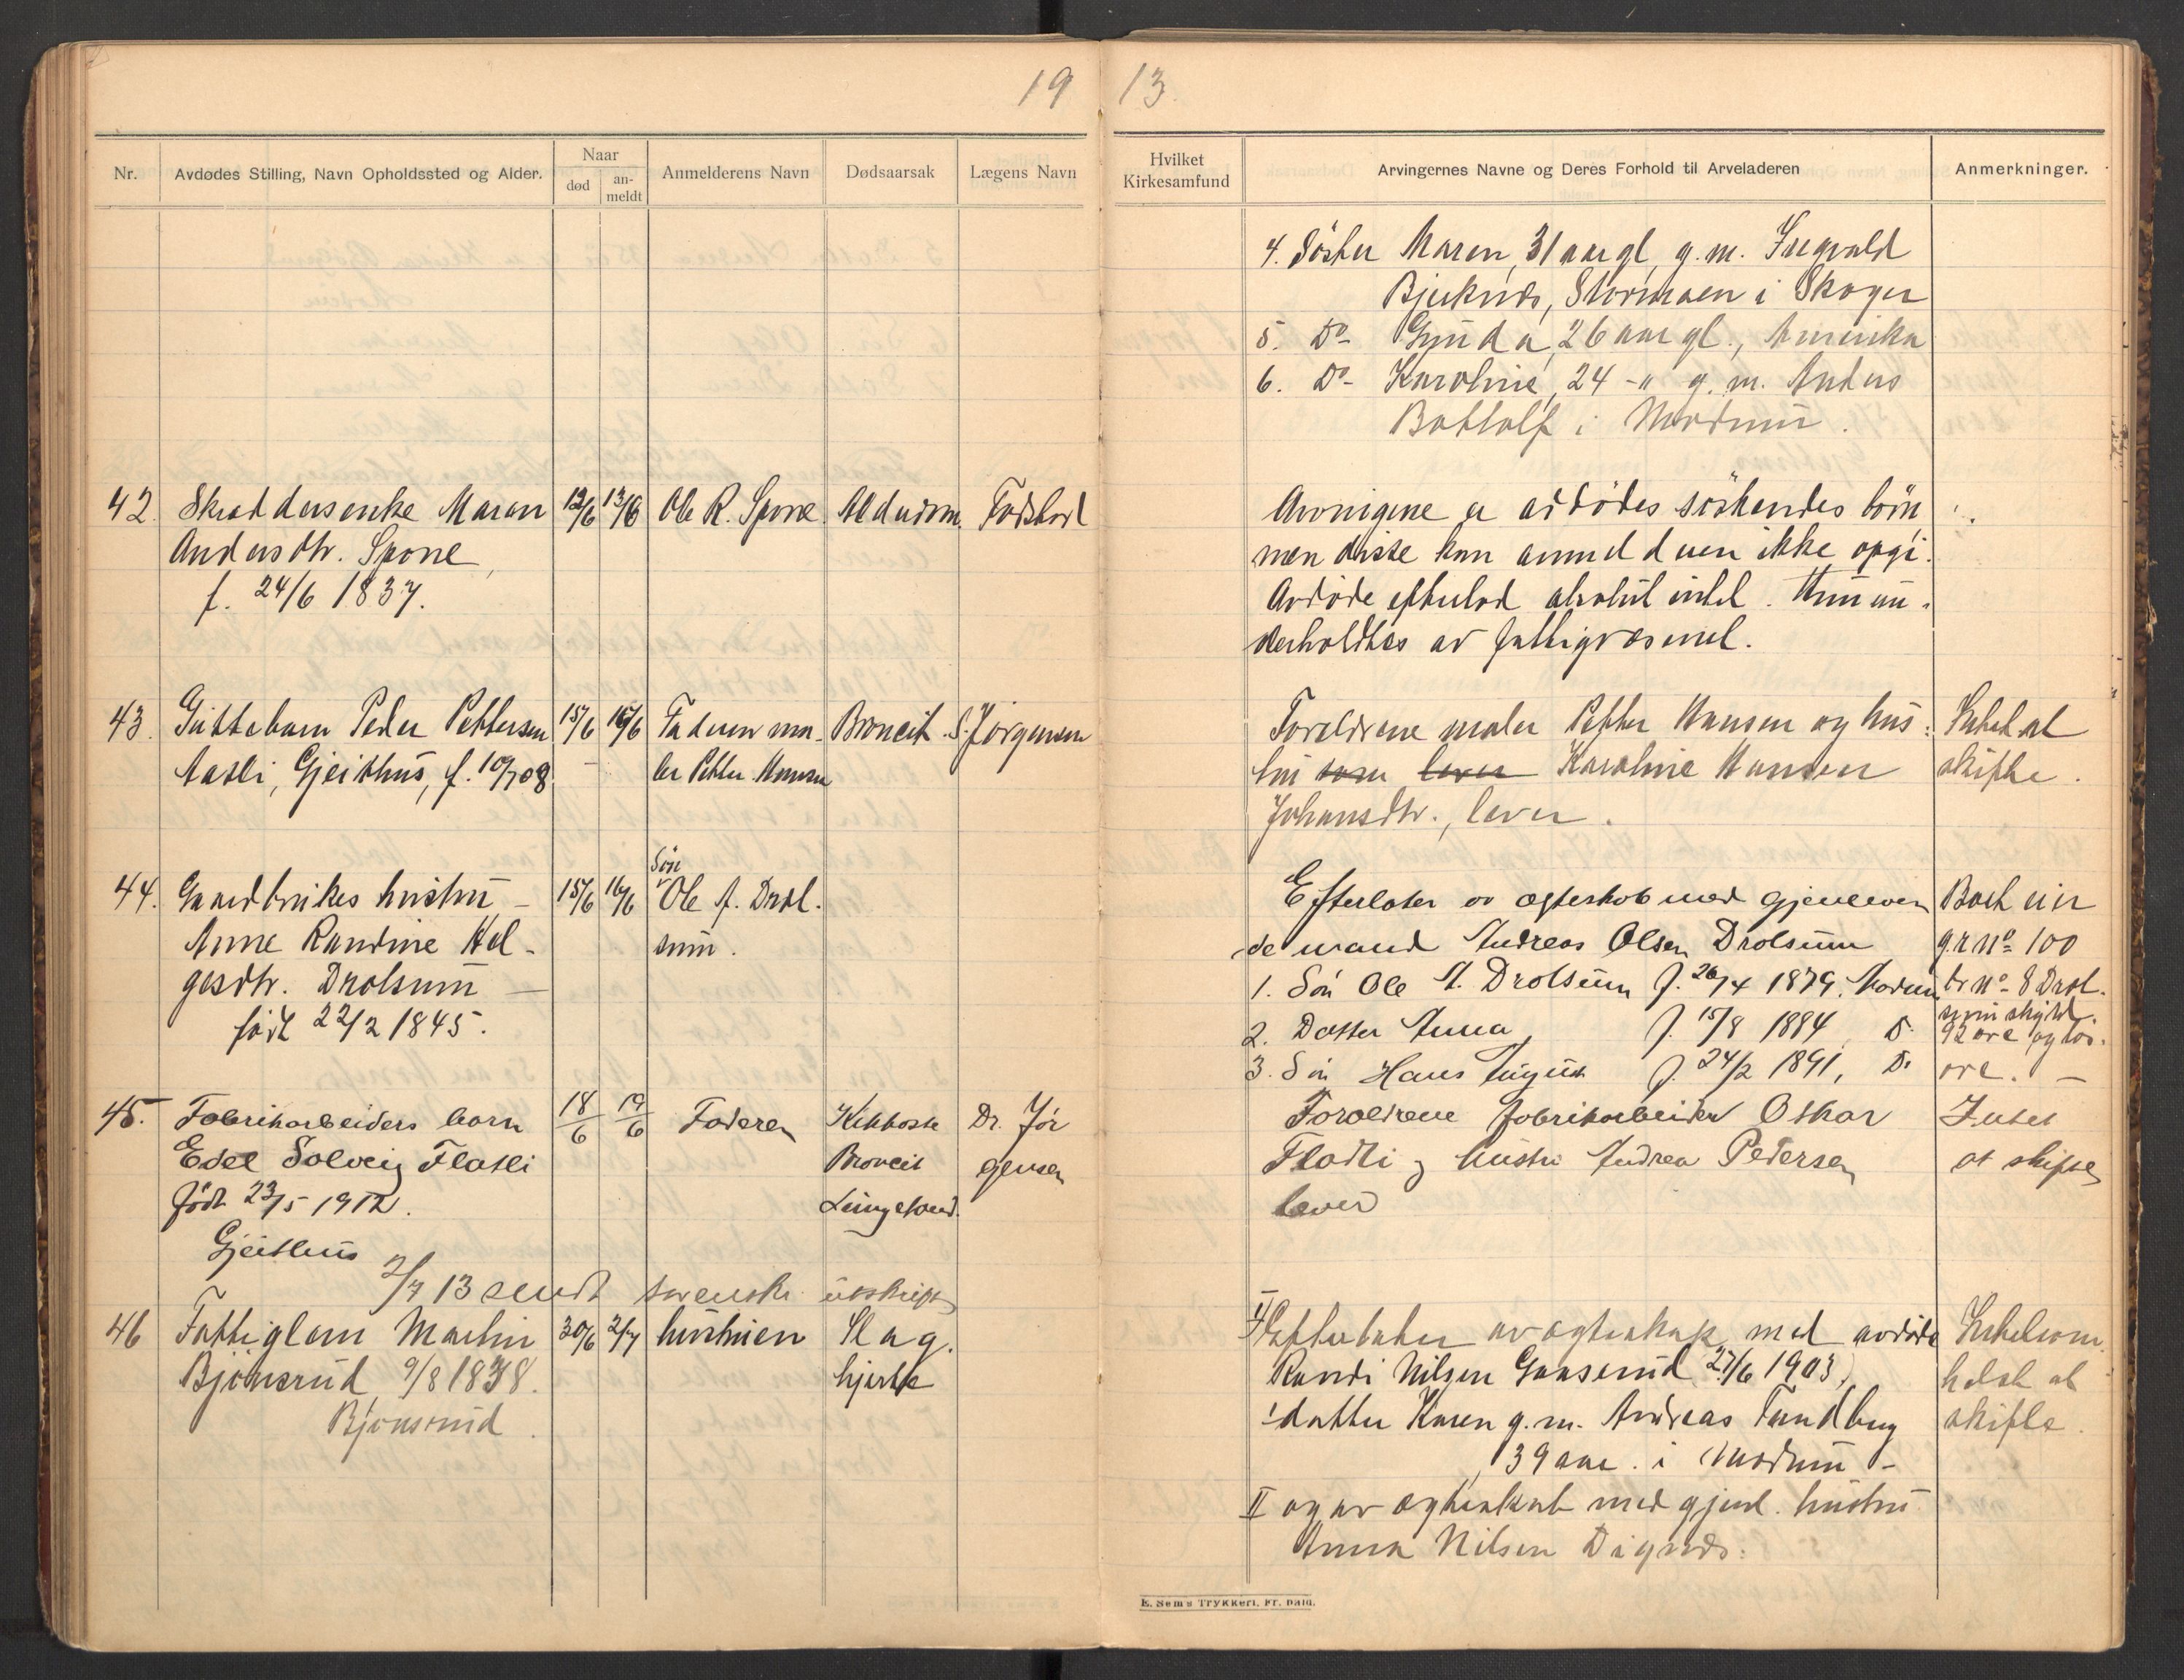 19 13
Nr.
Avdødes Stilling, Navn Opholdssted og Alder.
Naar
død
an-
meldt
Anmelderens Navn
Dødsaarsak
Lægens Navn
Hvilket
Kirkesamfund
Arvingernes Navne og Deres Forhold til Arveladeren
Anmerkninger.
4. Söster Maren, 31 aar gl, g. m. Ingvald
Bjerknæs, Stormoen i Skoger
5. Do Gunda, 26 aar gl., Amerika
6. Do Karoline, 24 -"- g. m. Anders
Bottolf i Modum.
42. Skraddersenke Maren
Andersdtr. Spone,
f. 24/6 1837.
12/6 13/6
Ole R. Spone
Alderdom
Fodstad
Arvingene er avdödes söskendes börn,
men disse kan anmelderen ikke opgi.
Avdöde efterlod absolut intet. Hun un-
derholdtes av fattigvæsenet.
43. Guttebarn Peder Pettersen
Aasli, Gjeithus, f. 10/7 08.
15/6 16/6
Faderen ma-
ler Petter Hansen
Broncit.
S. Jörgensen
Foreldrene maler Petter Hansen og hus-
tru som lever Karoline Hansen
Johansdtr., lever.
Intet at
skifte.
44. Gaardbrukes hustru -
Anne Randine Hel-
gesdtr. Drolsum -
født 22/2 1845.
15/6 16/6
Sön
Ole A. Drol-
sum.
Efterlater av ægteskab med gjenleven
de mand Andreas Olsen Drolsum
1. Sön Ole A. Drolsum f. 26/4 1879. Modum
2. Datter Anna f. 15/8 1884, D.
3. Sön Hans August f. 24/2 1891, D.
Boet eier
g.r No 100
br No 8 Drol-
sum skyld
92 øre og lös-
øre. -
45. Fabrikarbeiders barn
Edel Solveig Flatli
født 23/5 1912.
Gjeithus
18/6 19/6
Faderen
Kikhoste
Broncit
Lungebetænd.
Dr. Jør
gensen
Foreldrene fabrikarbeider Oskar
Flatli og hustru Andrea Pedersen
lever
Intet
at skifte
2/7 13 sendt svenske utskrift
46 Fattiglem Martin
Bjönsrud 9/8 1838.
Bjönsrud.
30/6 2/7
hustruen
Slag.
hjerte
I Efterlater av ægteskap med avdöde
Randi Nilsen Gaaserud 27/6 1903,
1 datter Karen g. m. Andreas Tandberg
39 aar. i Modum -
II og av ægteskab med gjenl. hustru
Anna Nilsen Digræs.
Intetsom-
helst at
skifte.
E. Sem's Trykkeri, Fr. hald.